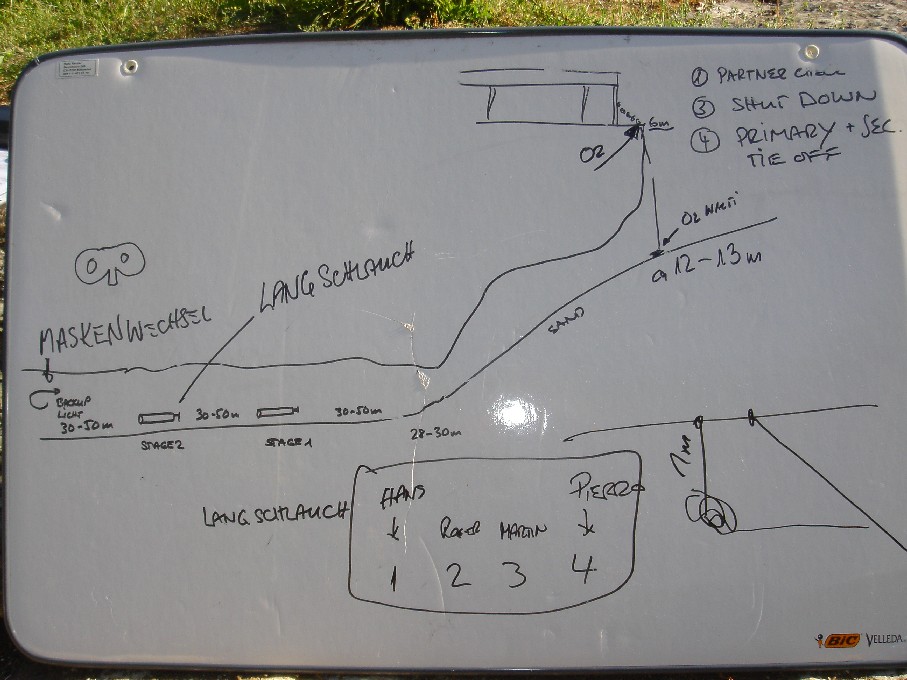 ① PARTNER
③ SHUT DOWN
④ PRIMARY + SEC.
TIE OFF
6m
O2
O2 WAITI
12-13m
SAND
LANGSCHLAUCH
MASKENWECHSEL
BACKUP
LICHT
30-50m
30-50m
30-50m
STAGE 2
STAGE 1
28-30m
1m
LANGSCHLAUCH
HANS
PIERRE
ROGER
MARTIN
1 2 3 4
BIC VELLEDA